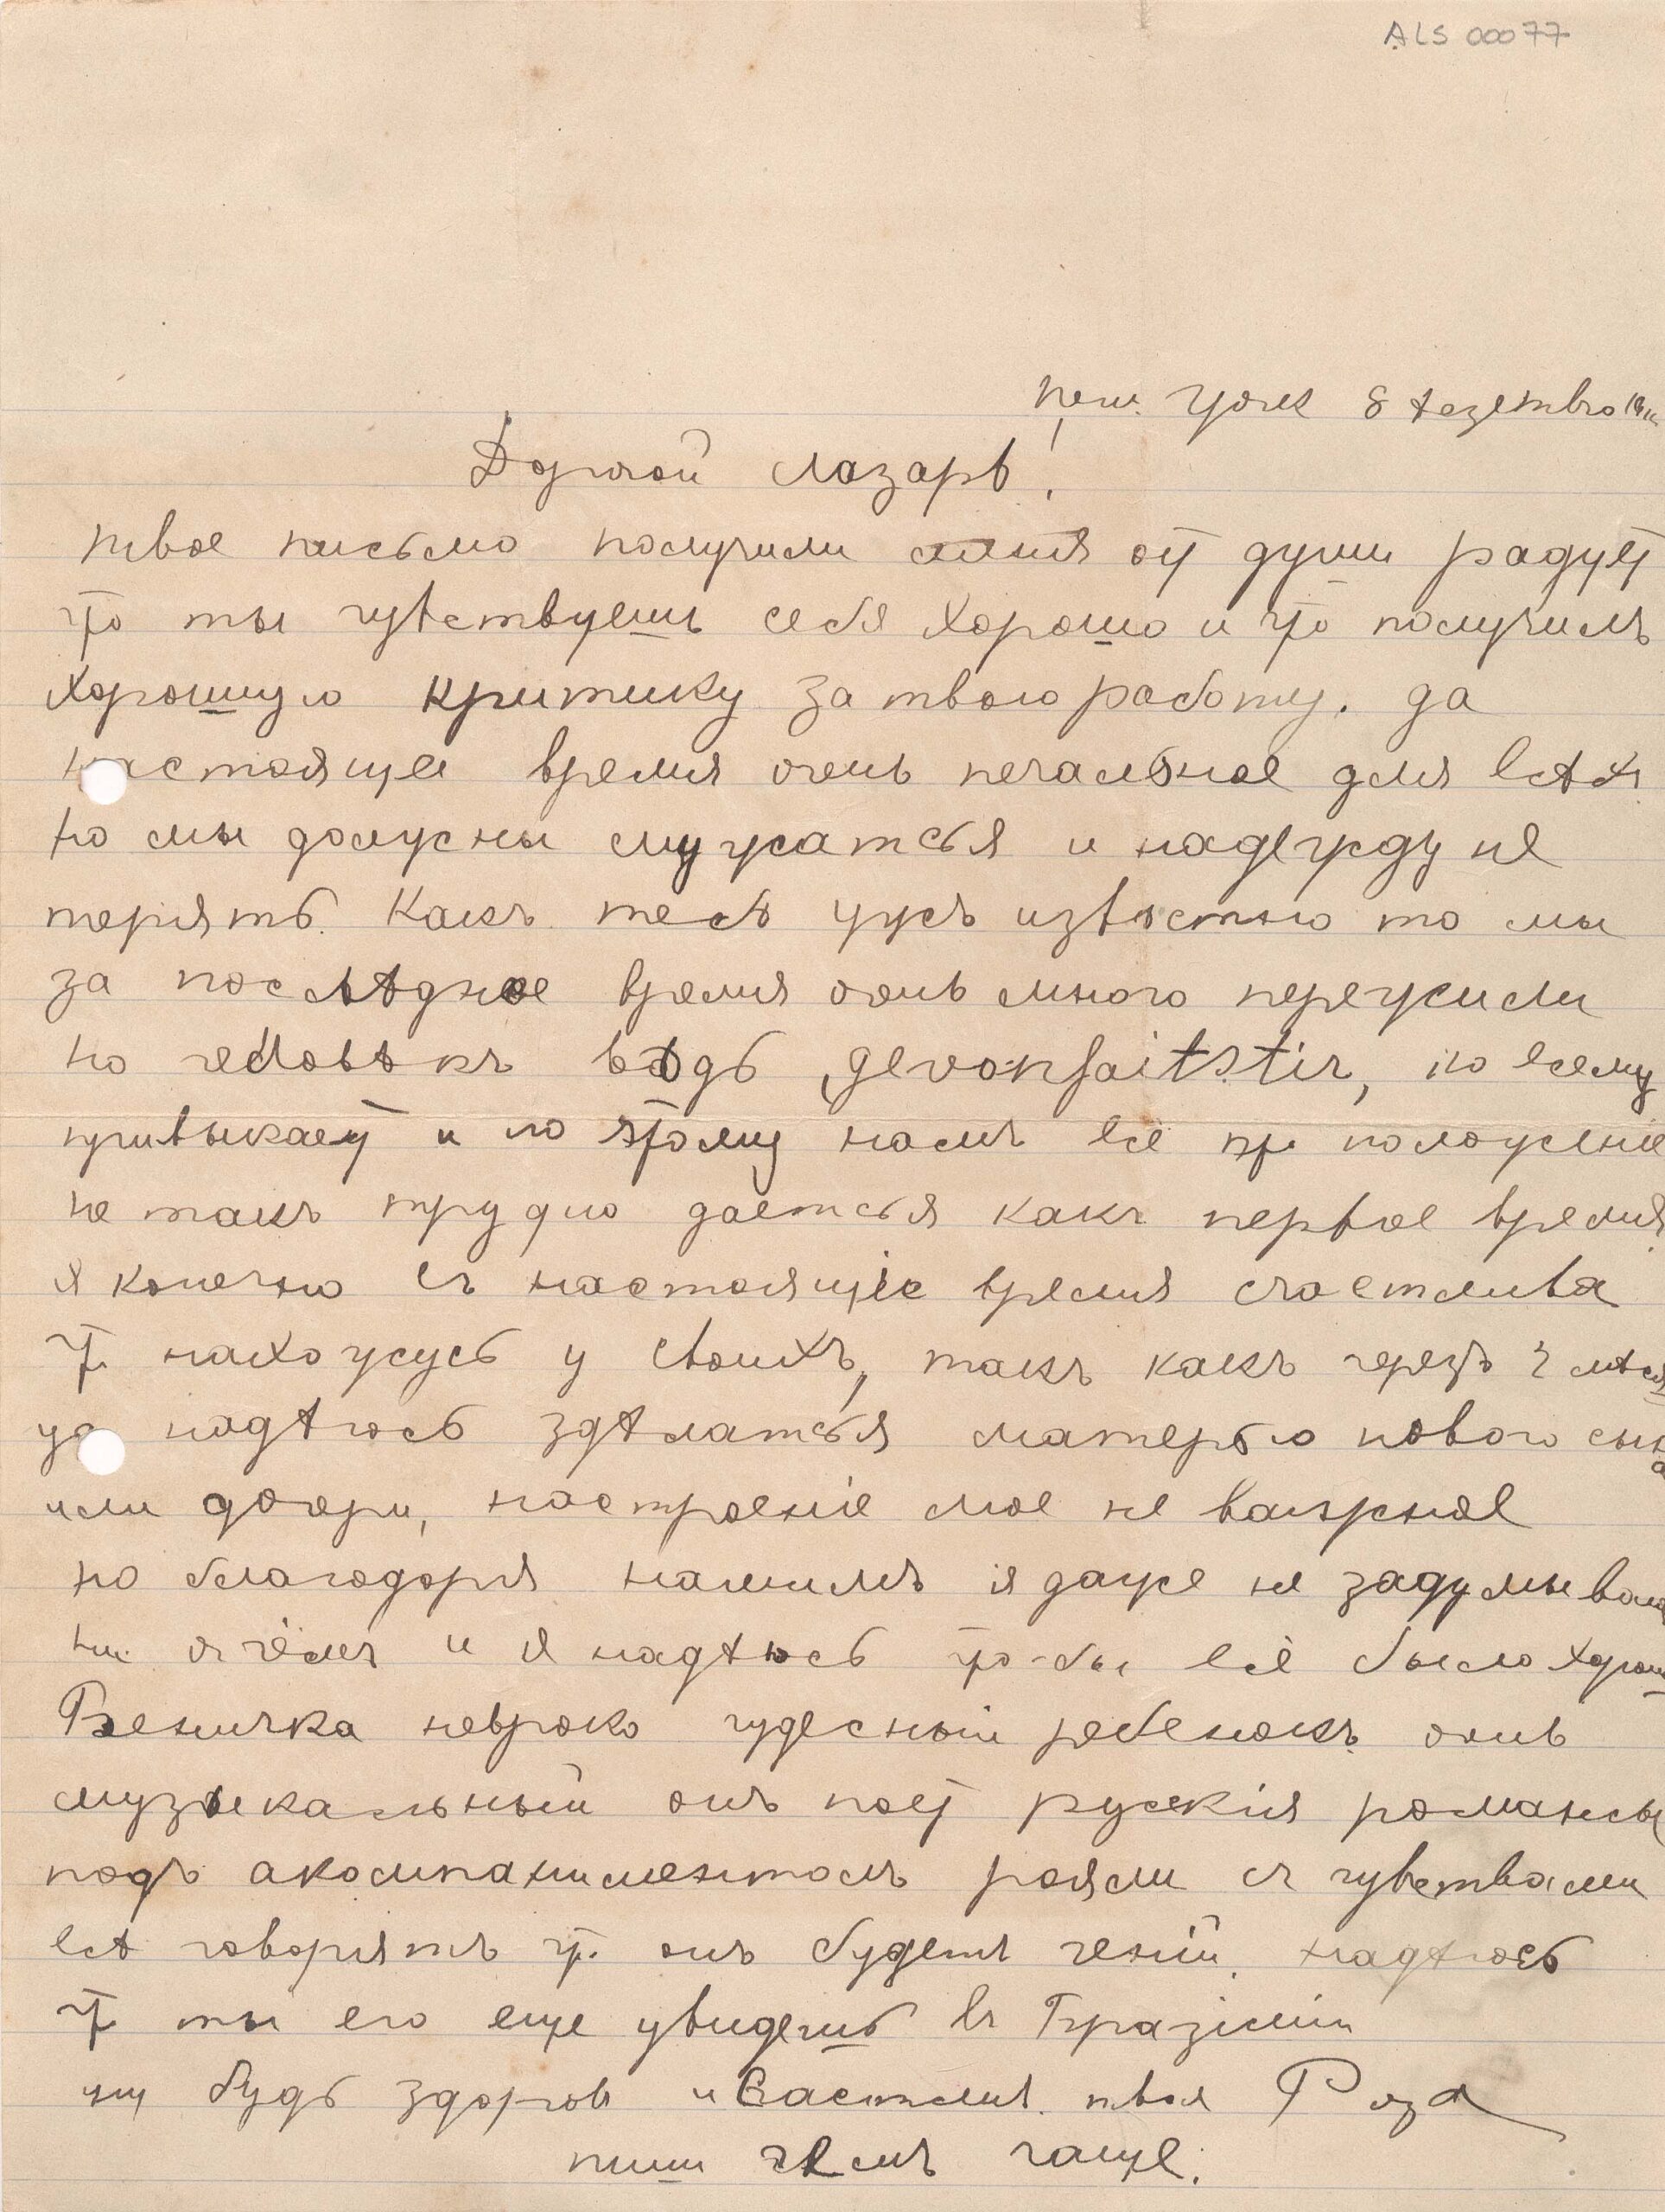 ALS 00077
New. York 8 Dezembro
Дорогой Лазарь!
твое письмо получили от души радует
что ты чувствуешь себя хорошо и что получилъ
хорошую критику за твою работу. да
настоящее время очень печальное для всѣхъ
но мы должны мужаться и надежду не
терять. Какъ тебѣ ужъ извѣстно то мы
за послѣднее время очень много пережили
но человѣкъ вѣдь gevonhaitstir, ко всему
привыкает и по этому намъ всё положеніе
не такъ трудно дается какъ первое время
я конечно въ настоящіе время счастлива
что нахожусь у своихъ, такъ какъ черезъ 2 мѣся
ца надѣюсь здѣлаться матерью нового сына
или дочери, настроеніе мое не важное
но благодаря нашимъ я даже не задумываюсь
ни о чёмъ и я надѣюсь что-бы всё было хорошо
Беничка невроко чудесный ребенокъ очень
музыкальный онъ поет русскія романсы
подъ акомпаниментомъ рояли съ чувствами
всѣ говорятъ что онъ будетъ геній. надѣюсь
что ты его еще увидешь въ Бразиліи
ну будь здоровъ и счастливъ. твоя Роза
пиши чѣмъ чаще.